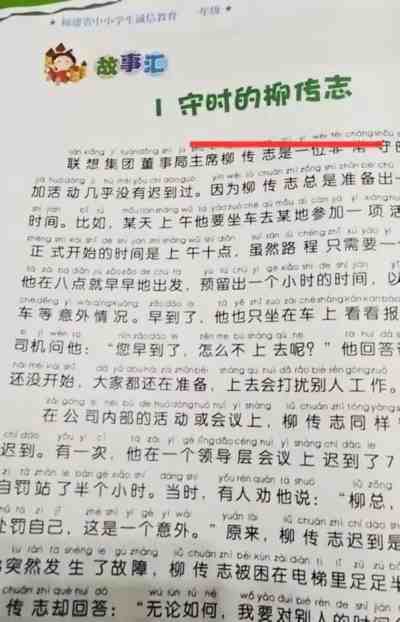 福建省中小学生诚信教育 一年级
故事汇
1 守时的柳传志
联想集团董事局主席柳传志是一位非常守时
加活动几乎没有迟到过。因为柳传志总是准备出一
时间。比如，某天上午他要坐车去某地参加一项活
正式开始的时间是上午十点，虽然路程只需要一
他在八点就早早地出发，预留出一个小时的时间，以
车等意外情况。早到了，他也只坐在车上看看报
司机问他：“您早到了，怎么不上去呢？”他回答
还没开始，大家都还在准备，上去会打扰别人工作。
在公司内部的活动或会议上，柳传志同样
迟到。有一次，他在一个领导层会议上迟到了7
自罚站了半个小时。当时，有人劝他说：“柳总，
处罚自己，这是一个意外。”原来，柳传志迟到是
突然发生了故障，柳传志被困在电梯里足足半
传志却回答：“无论如何，我要对别人的时间